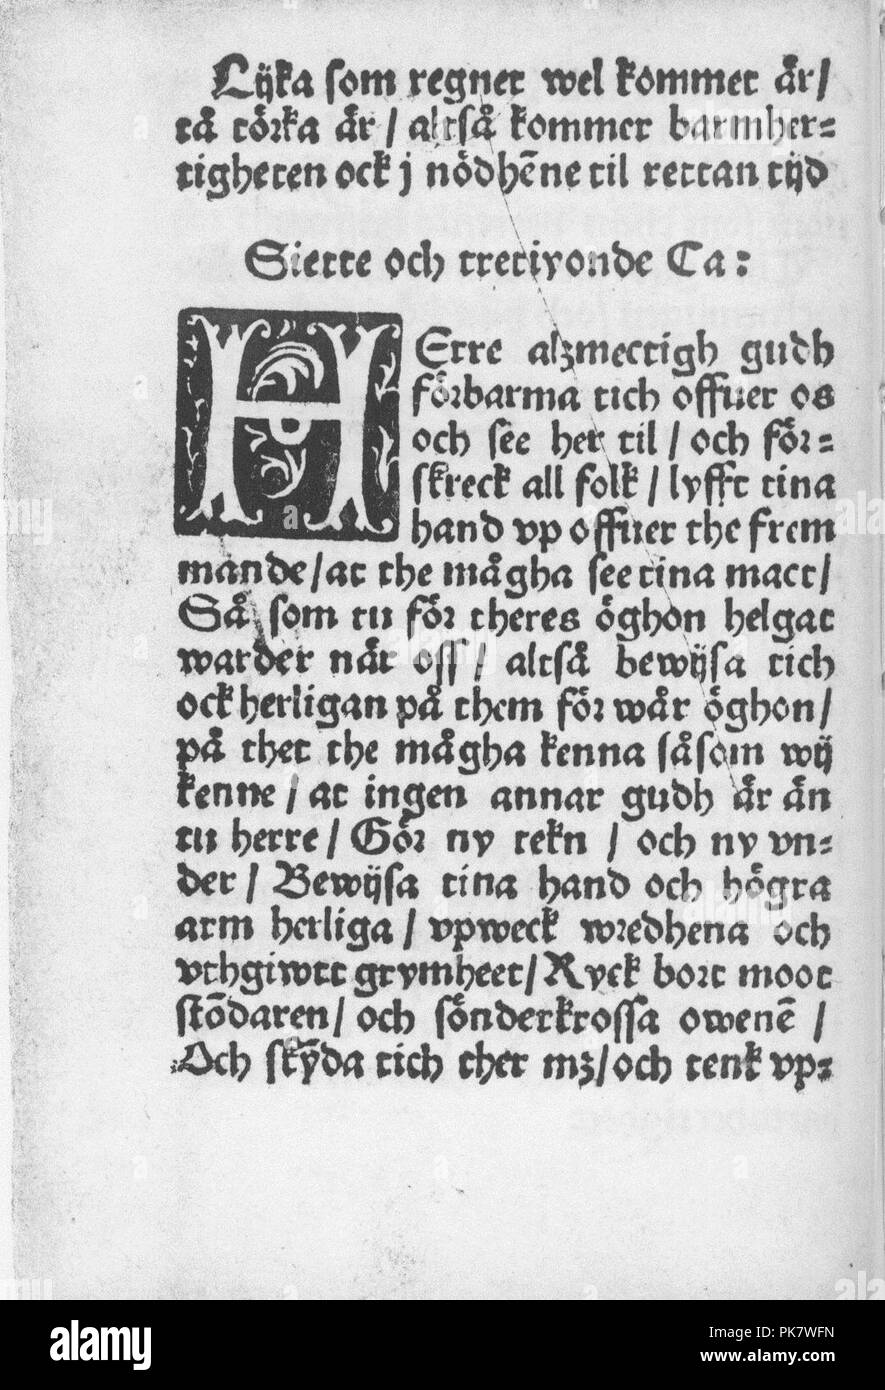 Lijka som regnet wel kommet är/
tå törka är / altså kommer barmher-
tigheten ock j nödhẽne til rettan tijd
Siette och tretiyonde Ca:
HErre alzmectigh gudh
förbarma tich offuer os
och see her til / och för-
skreck all folk / lyfft tina
hand vp offuer the frem
mande / at the mågha see tina mact /
Så som tu för theres öghon helgat
warder når oss / altså bewijsa tich
ock herligan på them för wår öghon /
på thet the mågha kenna såsom wij
kenne / at ingen annar gudh är än
tu herre / Gör ny tekn / och ny vn-
der / Bewijsa tina hand och högra
arm herliga / vpweck wredhena och
vthgiwtt grymheet / Ryck bort moot
stõdaren / och sönderkrossa owenẽ /
Och skỹda tich ther mz / och tenk vp-
alamy
Image ID: PK7WFN
www.alamy.com